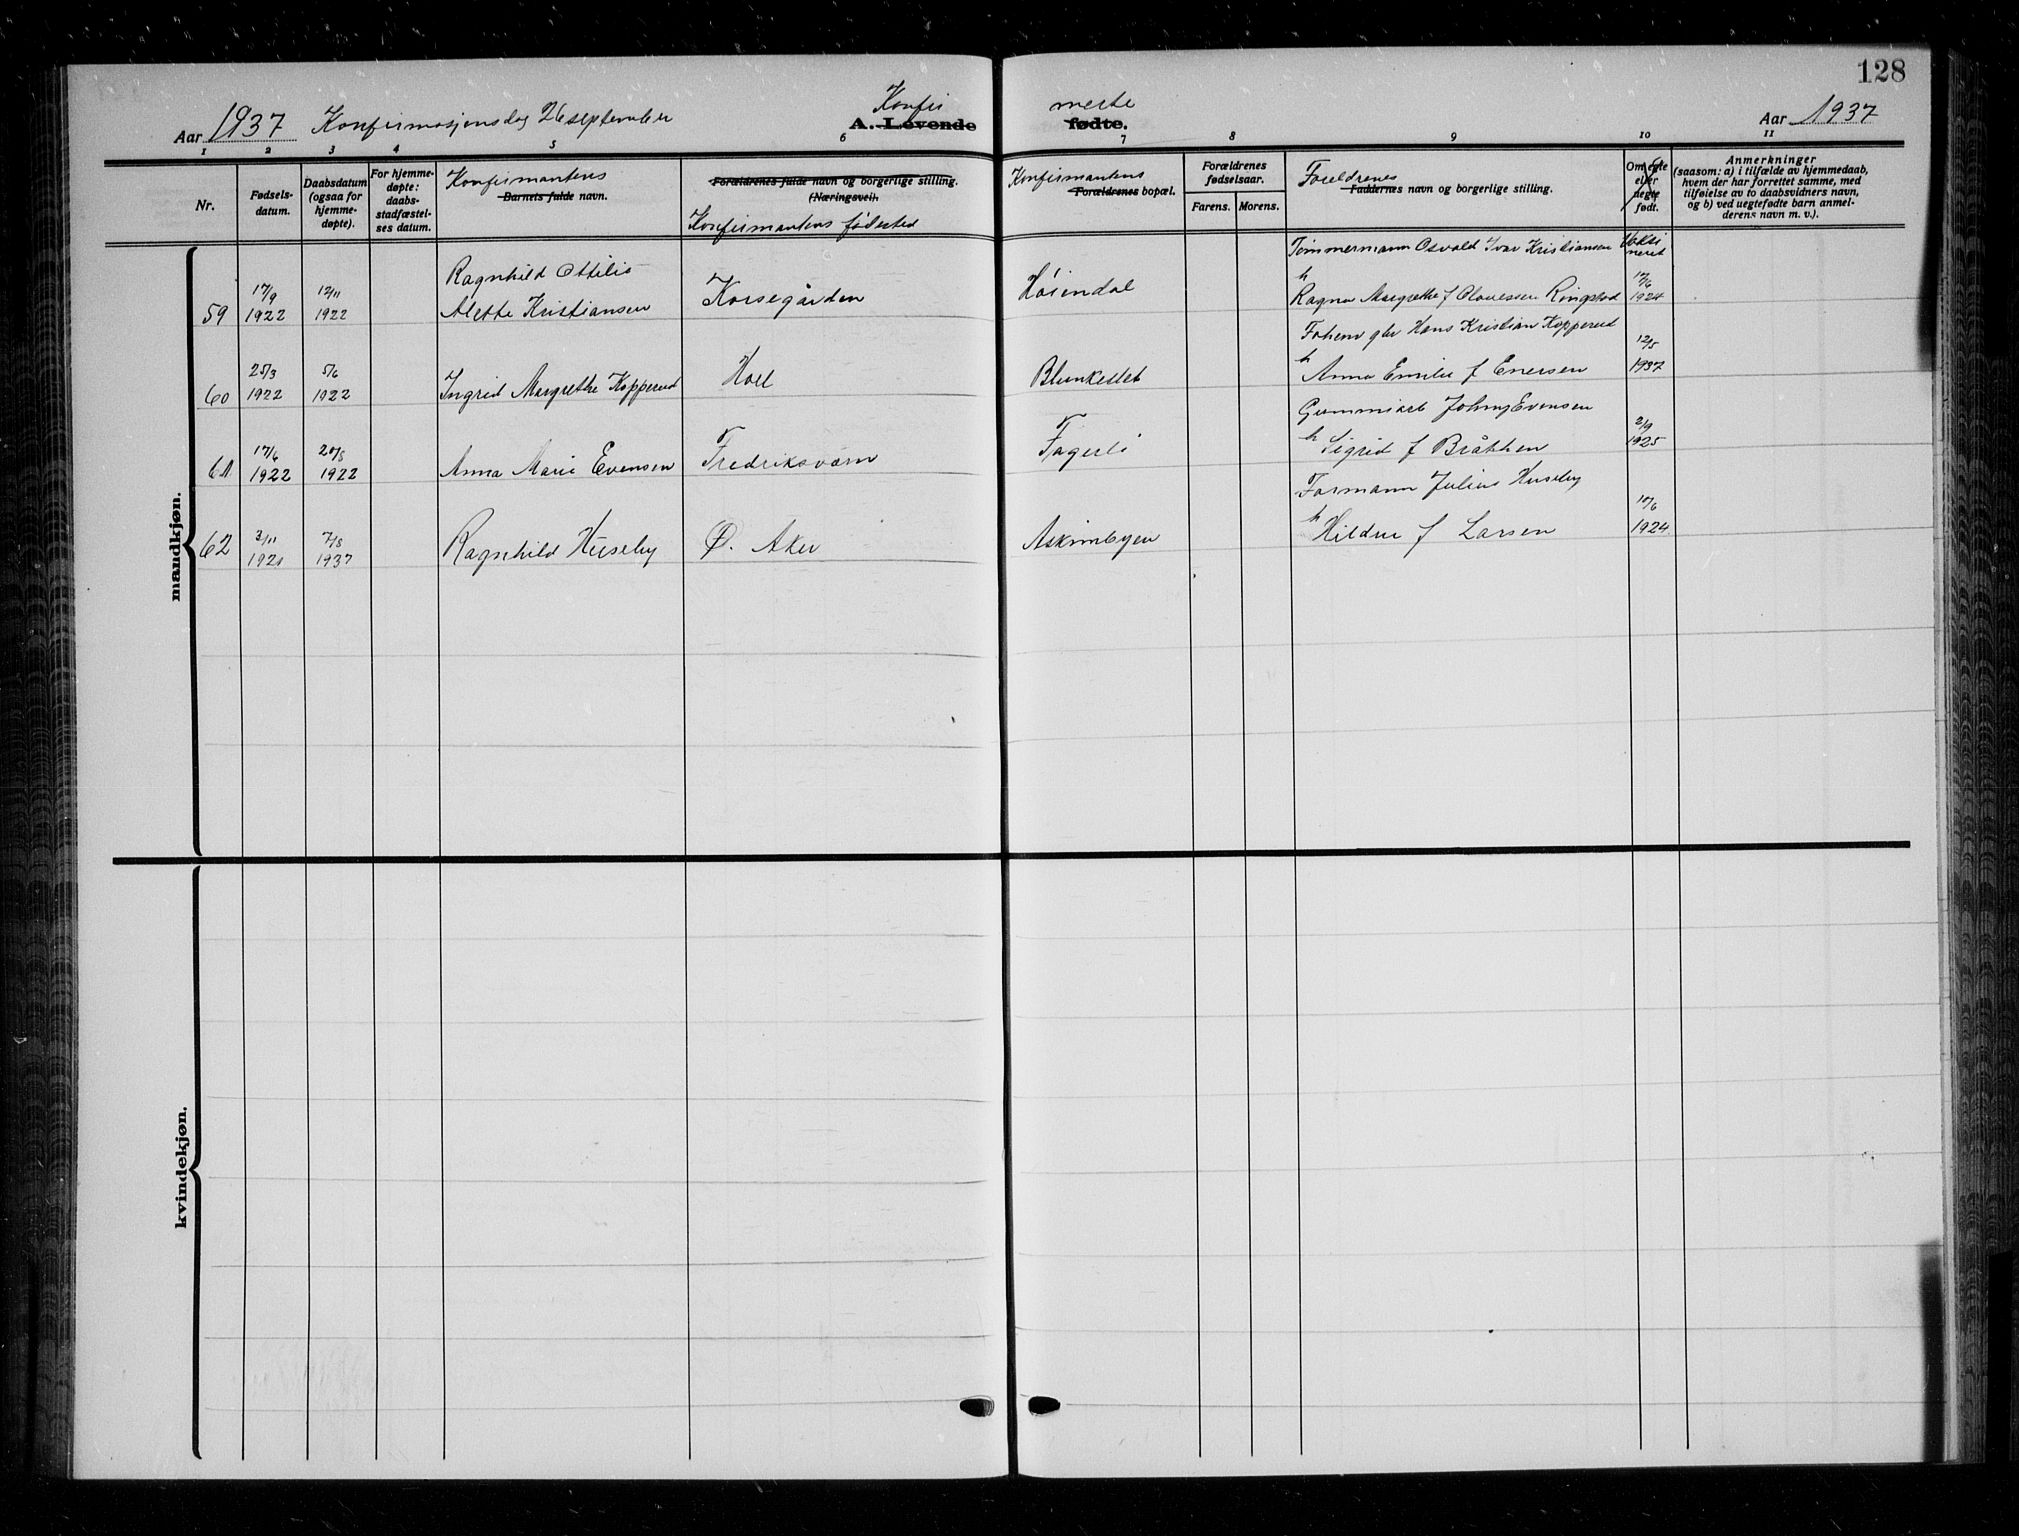 128
Aar 1937 Konfirmasjonsdag 26 september
Konfir merte
A. Levende fødte.
Aar 1937
1 2 3 4 5 6 7 8 9 10 11
Nr.
Fødsels-
datum.
Daabsdatum
(ogsaa for
hjemme-
døpte).
For hjemme-
døpte:
daabs-
stadfæstel-
ses datum.
Konfirmantens
Barnets fulde navn.
Forældrenes fulde navn og borgerlige stilling.
(Næringsvei).
Konfirmantens fødested
Konfirmantens
Forældrenes bopæl.
Forældrenes
fødselsaar.
Farens. Morens.
Foreldrenes
Faddernes navn og borgerlige stilling.
Om egte
eller
uegte
født.
Anmerkninger
(saasom: a) i tilfælde av hjemmedaab,
hvem der har forrettet samme, med
tilføielse av to daabsvidners navn,
og b) ved uegtefødte barn anmel-
derens navn m. v.).
mandkjøn.
Tømmermann Osvald Ivar Kristiansen
Vaksi
neret
59
17/9
1922
12/11
1922
Ragnhild Ottilie
Alette Kristiansen
Korsegården
Høiendal
h
Ragna Margrethe f Olavessen Ringstad
12/6
1924
60
25/3
1922
5/6
1922
Ingrid Margrethe Kopperud
Holl
Blunkestet
Hans Kristian Kopperud
h
Anna Emilie f Enersen
12/5
1937
61
17/6
1922
20/8
1922
Anna Marie Evensen
Fredriksvern
Fagerli
Gummiarb Johnny Evensen
h Sigrid f Bråthen
2/9
1925
62
3/11
1921
7/8
1937
Ragnhild Huseby
Ø. Aker
Askimbyen
Formann Julius Huseby
h Hildur f Larsen
10/6
1924
kvindekjøn.